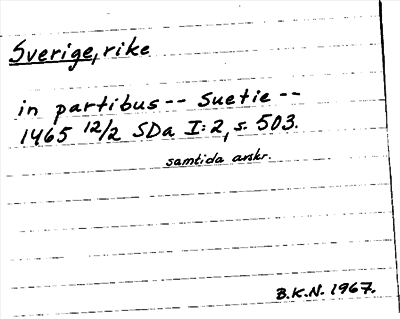 Sverige, rike
in partibus -- Suetie --
1465 12/2 SDa I:2, s. 503.
samtida avskr.
B.K.N. 1967.